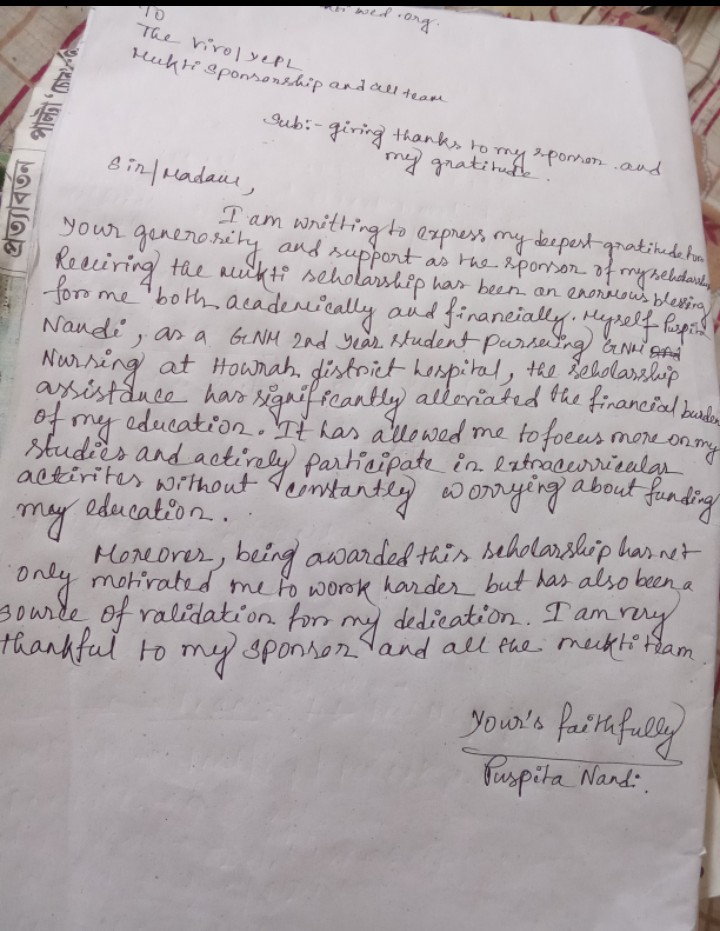 To
The Viro/yepL
Mukti Sponsorship and all team
Sub:- giving thanks to my sponsor and
my gratitude.
Sir/Madam,
I am writting to express my deepest gratitude for
your generosity and support as the sponsor of my scholarship
Receiving the mukti scholarship has been an enormous blessing
for me both academically and financially. Myself Puspita
Nandi, as a GNM 2nd year student pursueing GNM
Nursing at Howrah district hospital, the scholarship
assistance has significantly alleviated the financial burden
of my education. It has allowed me to focus more on my
studies and actively participate in extracurricular
activites without constantly worrying about funding
may education.
Moreover, being awarded this scholarship has not
only motivated me to work harder but has also been a
source of validation for my dedication. I am very
thankful to my sponsor and all the mukti team
Your's faithfully
Puspita Nandi.
প্রত্যাবর্তন